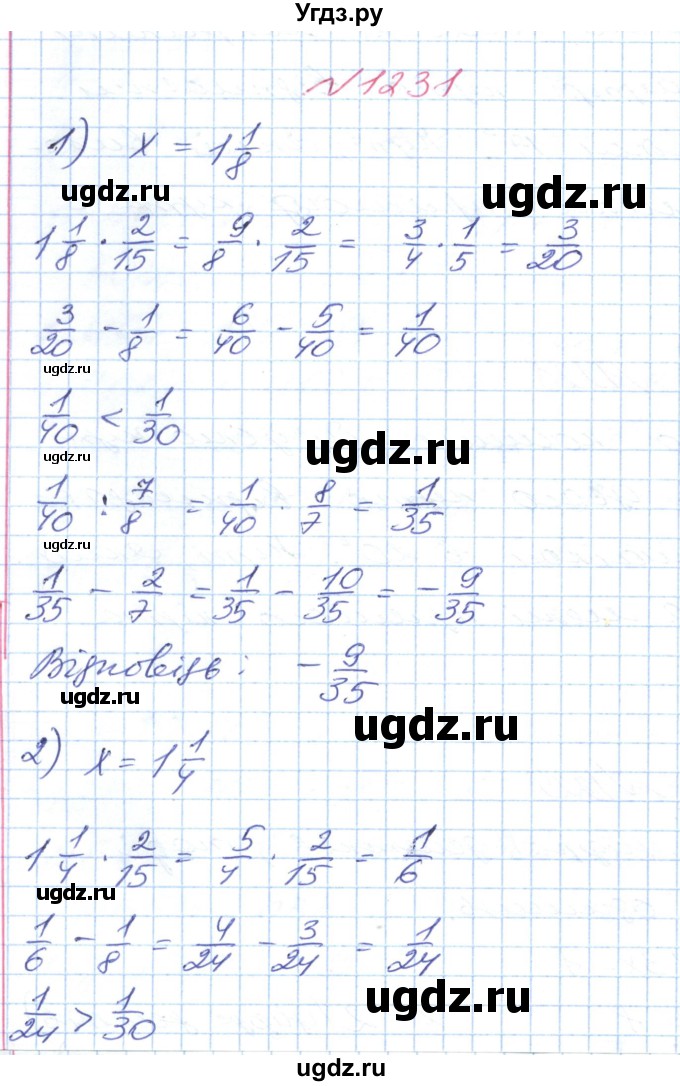 Угдз.ру
№1231
1) x = 1 1/8
ugdz.ru ugdz.ru
1 1/8 · 2/15 = 9/8 · 2/15 = 3/4 · 1/5 = 3/20
3/20 - 1/8 = 6/40 - 5/40 = 1/40
ugdz.ru
1/40 < 1/30
ugdz.ru ugdz.ru
1/40 : 7/8 = 1/40 · 8/7 = 1/35
ugdz.ru
1/35 - 2/7 = 1/35 - 10/35 = - 9/35
Відповідь: - 9/35
ugdz.ru
ugdz.ru
2) x = 1 1/4
1 1/4 · 2/15 = 5/4 · 2/15 = 1/6
ugdz.ru
1/6 - 1/8 = 4/24 - 3/24 = 1/24
ugdz.ru
1/24 > 1/30
ugdz.ru